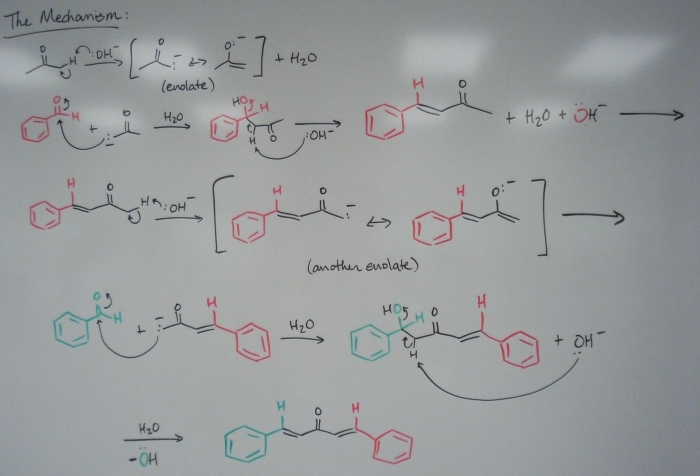 The Mechanism:
O H :OH⁻ O :⁻ ↔ O:⁻ + H₂O
(enolate)
O H + :⁻ O H₂O HO H H O :OH⁻ H O + H₂O + :OH⁻
H O H :OH⁻ H O :⁻ ↔ H O:⁻
(another enolate)
O H + :⁻ O H H₂O HO H H O H + :OH⁻
H₂O
-:OH
H O H